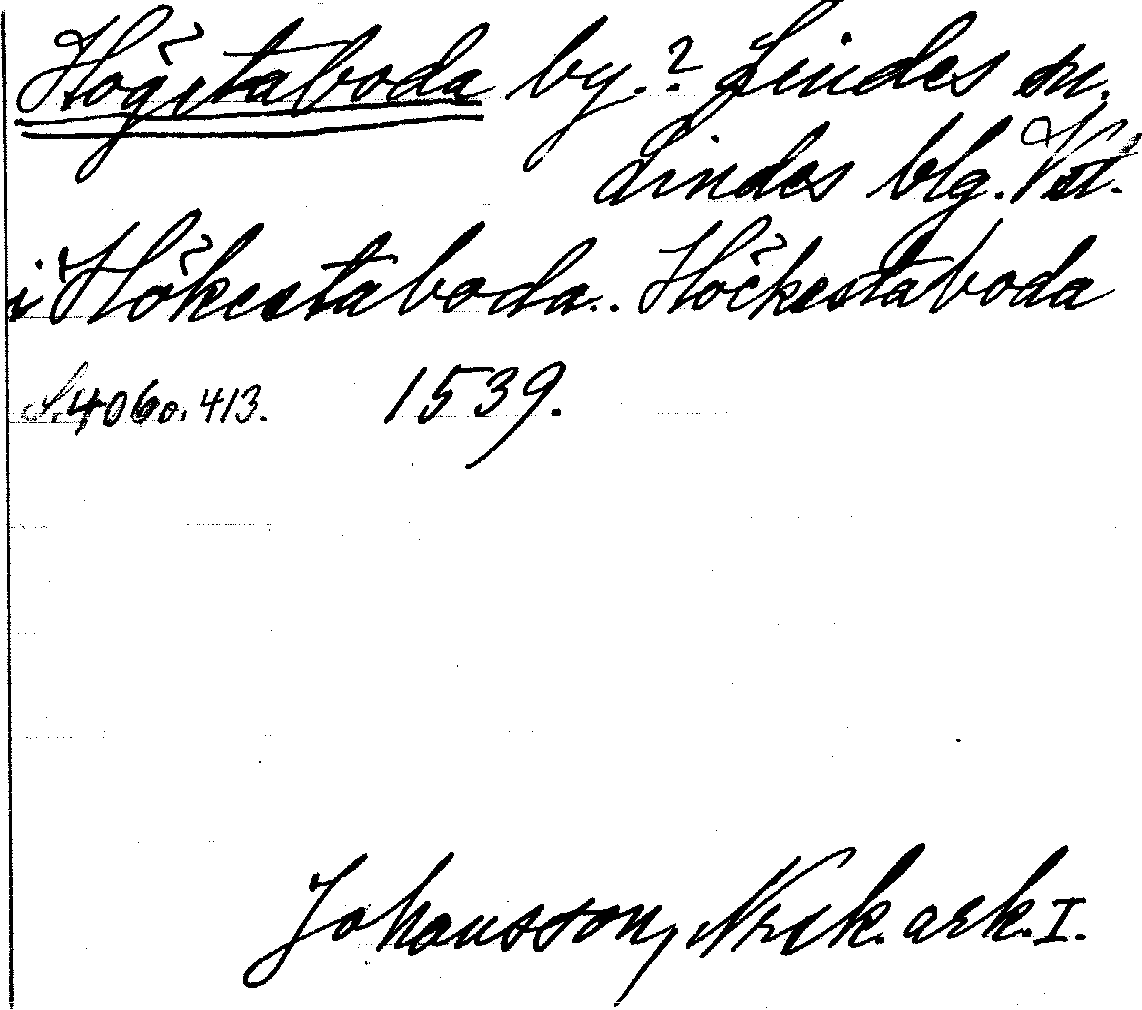 Högstaboda by.? Lindes sn.
Lindes blg. Vstl.
i Hökestaboda.. Höckestaboda
S. 406 o. 413. 1539.
Johansson, Nrik. ark. I.